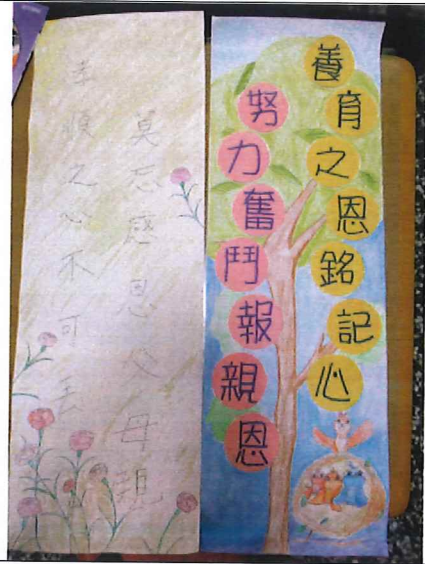 養育之恩銘記心
努力奮鬥報親恩
莫忘感恩父母親
孝順之心不可